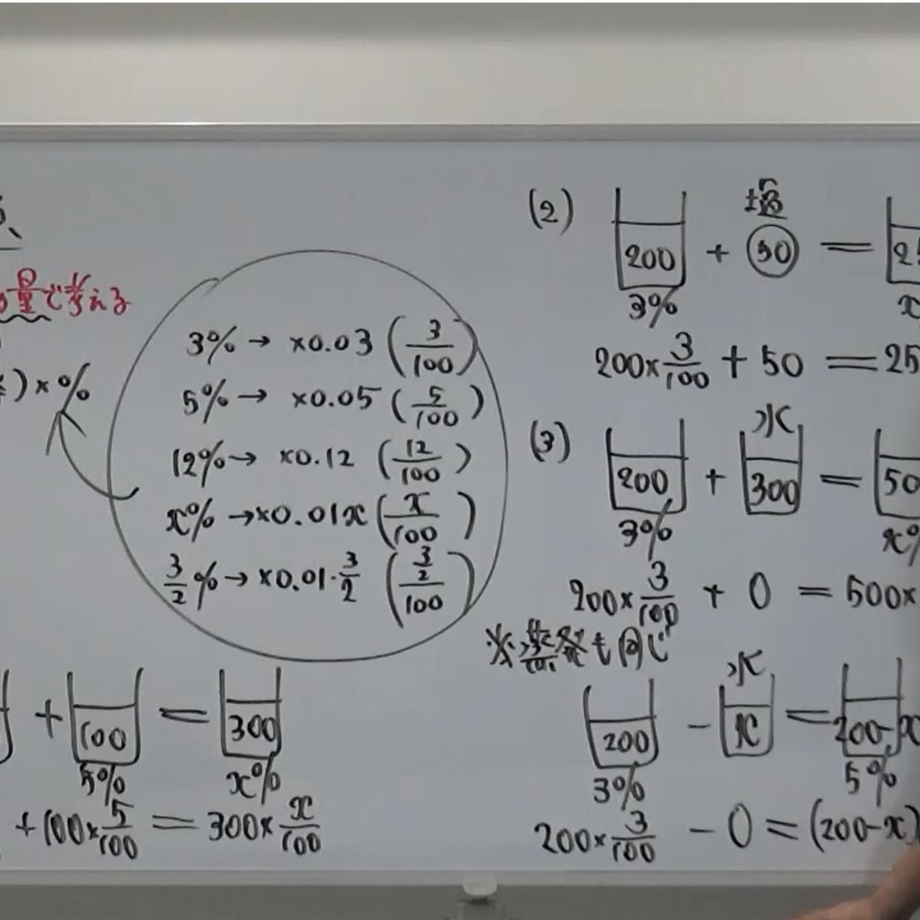 量で考える
)×%
3%→ ×0.03 (3/100)
5%→ ×0.05 (5/100)
12%→ ×0.12 (12/100)
x%→×0.01x (x/100)
3/2%→×0.01・3/2 (3/2/100)
+ 100 = 300
5% x%
+100×5/100 = 300×x/100
(2) 塩
200 + 50 = 25
3% x
200×3/100 + 50 = 25
(3) 水
200 + 300 = 50
3% x%
200×3/100 + 0 = 500×
※蒸発も同じ
水
200 - x = 200-x
3% 5%
200×3/100 - 0 = (200-x)